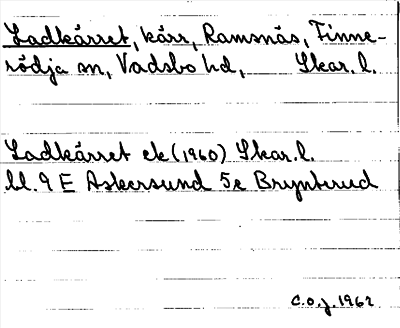 Ladkärret, kärr, Ramsnäs, Finne-
rödja sn, Vadsbo hd, Skar. l.
Ladkärret ek (1960) Skar. l.
bl. 9 E Askersund 5e Brynterud
C.O.J. 1962